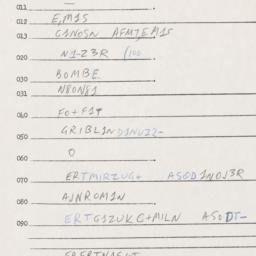 011
012 E,M15
013 G1NOSN AFM7,EM15
020 N1-Z3R /100
030 BOMBE
031 N8ON81
040 FO+F1T
050 GRIBL1ND1NUZZ-
060 O
070 ERTMIRZUG+ ASGD1NOJ3R
080 AJNROM1N
090 ERTG1ZUKE+MILN ASODT-